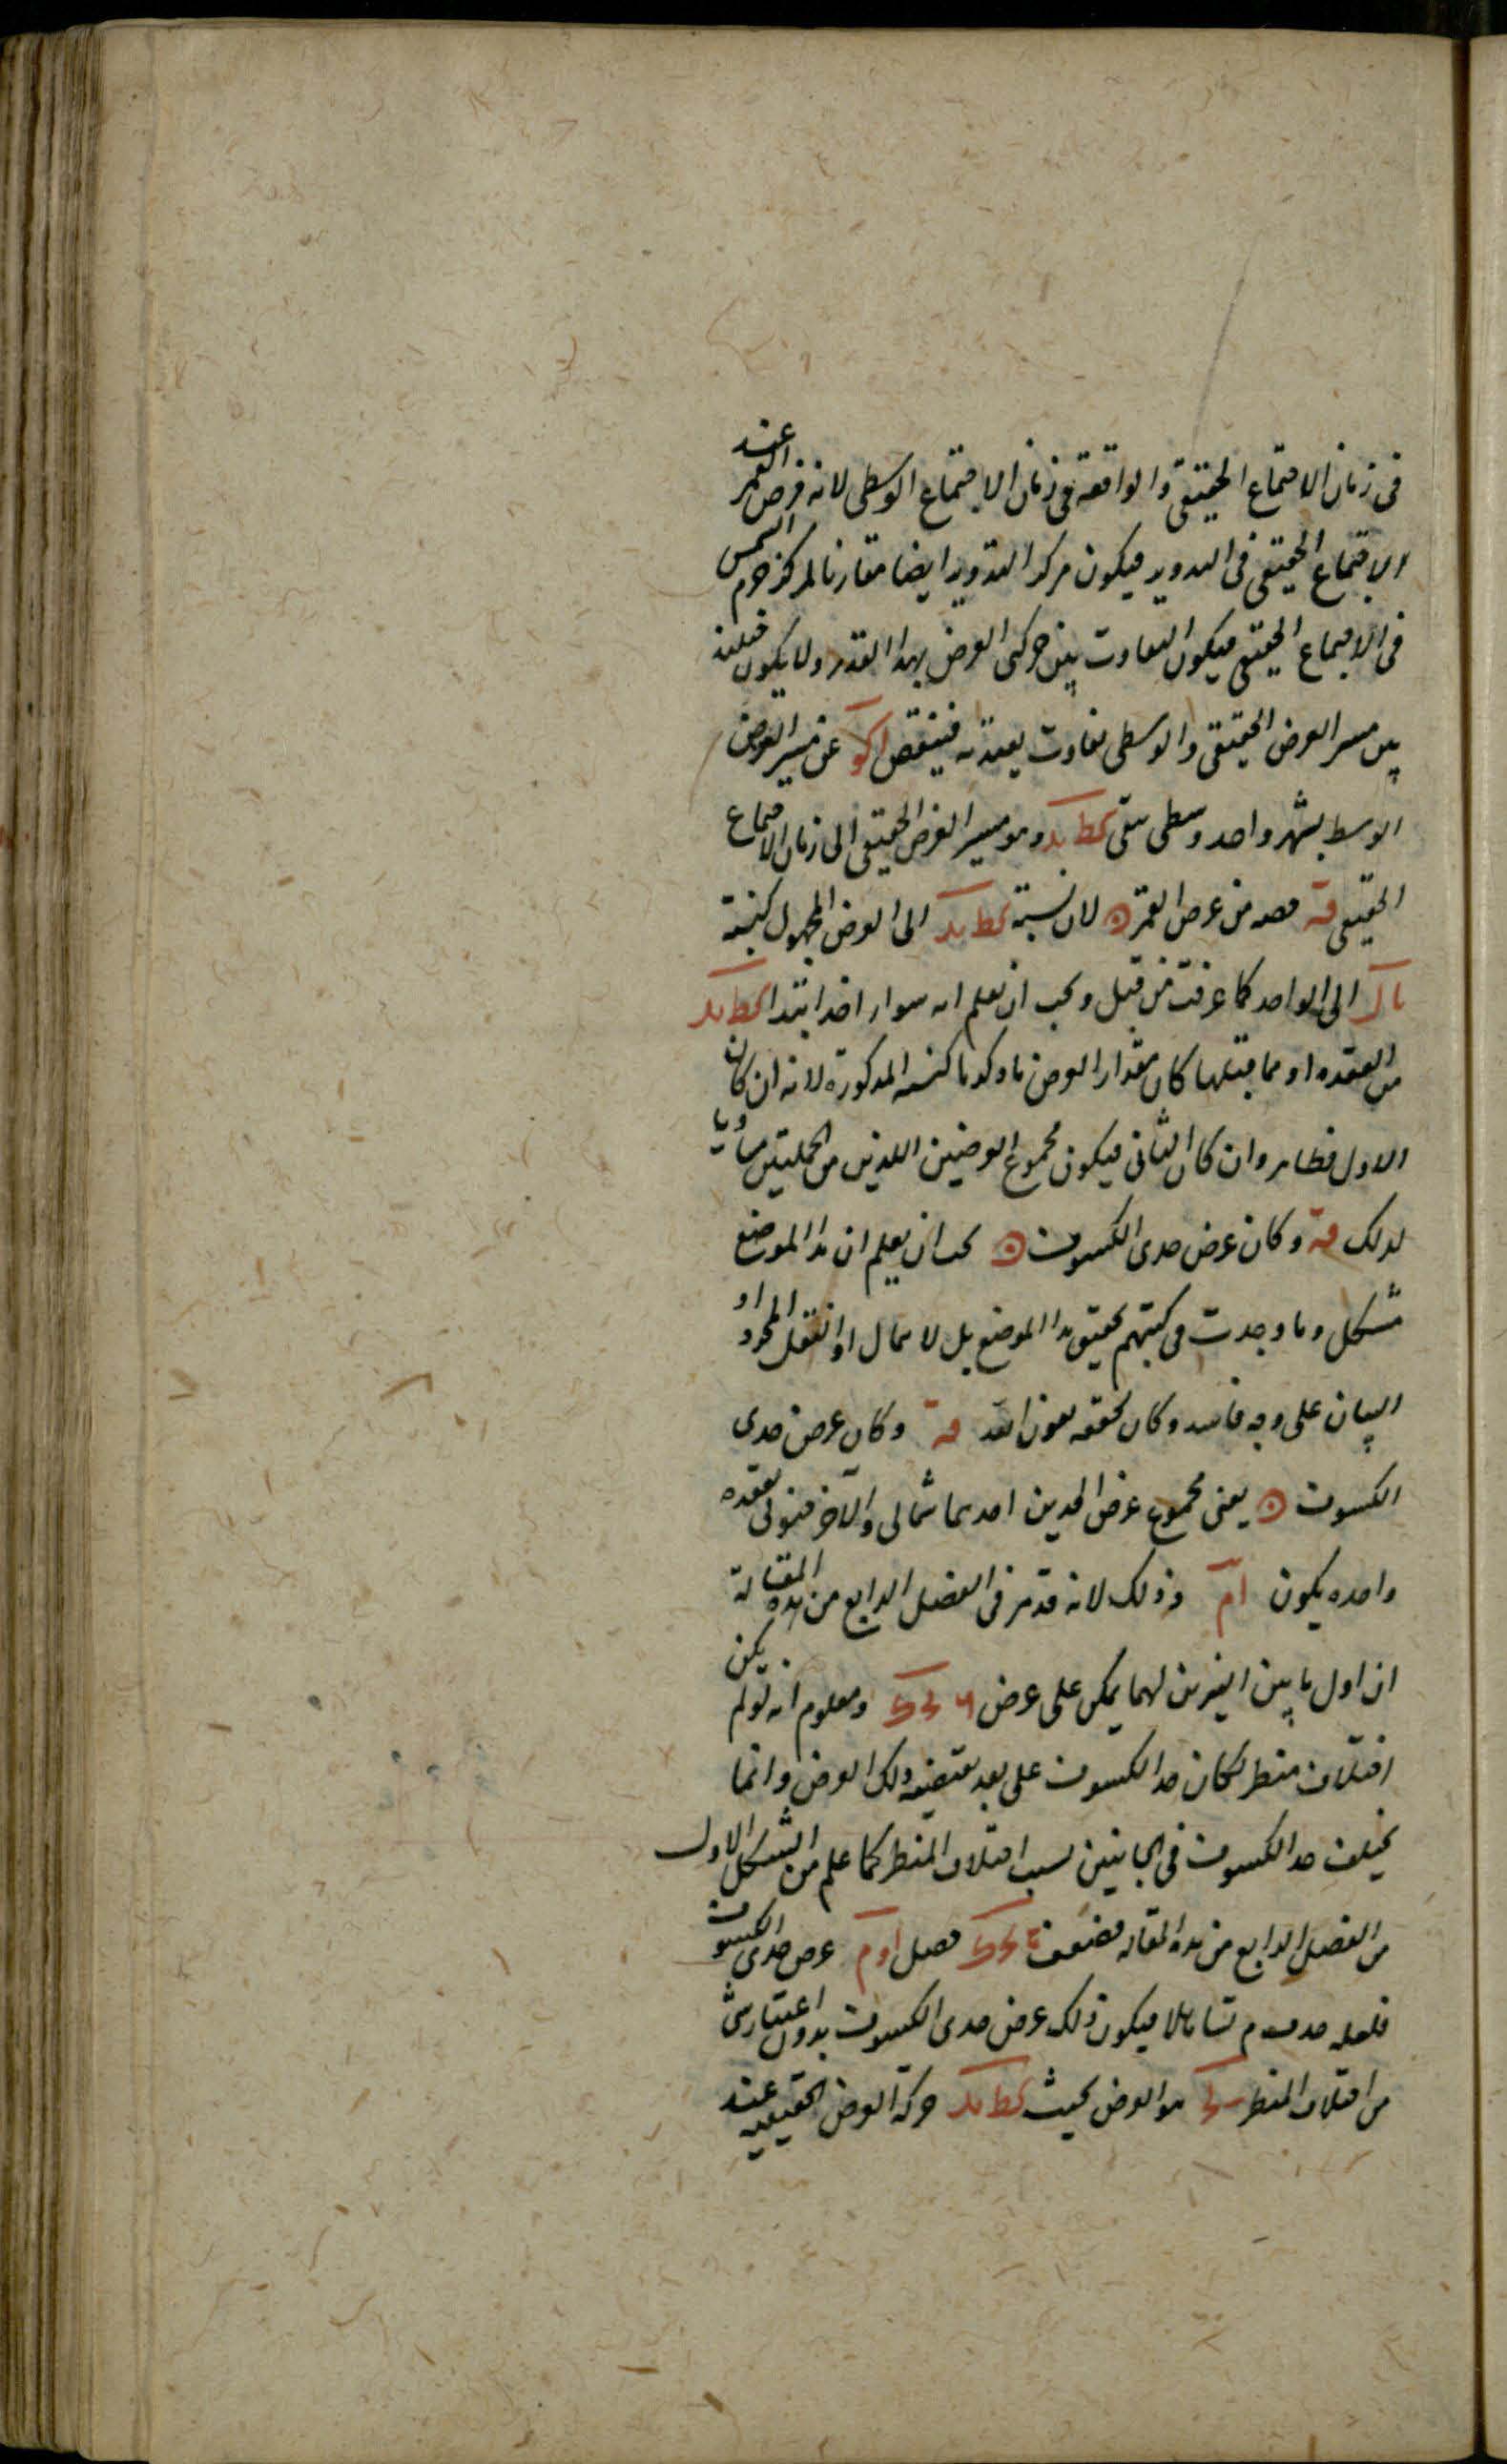 فى زمان الاجتماع الحقيقى والواقعة فى زمان الاجتماع الوسطى لانه فرض القمر عند
الاجتماع الحقيقى فى التدوير فيكون مركز التدوير ايضا مقارنا لمركز جرم الشمس
فى الاجتماع الحقيقى فيكون التفاوت بين حركتى العرض بهذا القدر ولا يكون حينئذ
بين مسير العرض الحقيقى والوسطى تفاوت يعتد به فينقص ا كو عن مسير العرض
الوسط بشهر واحد وسطى تبقى كط يد وهو مسير العرض الحقيقى الى زمان الاجتماع
الحقيقى قه حصه من عرض القمر لان نسبة كط يد الى العرض المجهول كنسبة
يا ل الى الواحد كما عرفت من قبل ويجب ان تعلم انه سواء اخذ ابتداء كط يد
من العقدة او مما قبلها كان مقدار العرض ما ذكر المذكورة لانه ان كان
الاول فظاهر وان كان الثانى فيكون مجموع العرضين اللذين من الجملتين مساويا
لذلك قه وكان عرض حدى الكسوف يجب ان يعلم ان هذا الموضع
مشكل وما وجدت فى كتبهم تحقيق هذا الموضع بل او انتقل المحرر او
البيان على وجه فاسد وكان تحققه بعون الله قه وكان عرض حدى
الكسوف يعنى مجموع عرض الحدين احدهما شمالى والآخر جنوبى بعقدة
واحدة يكون ا م وذلك لانه قد مر فى الفصل الرابع من هذه المقالة
ان اول ما بين النيرين لهما يمكن على عرض ومعلوم انه لو لم يكن
اختلاف منظر لكان حد الكسوف على بعد يقتضيه ذلك العرض وانما
يختلف حد الكسوف فى الجانبين بسبب اختلاف المنظر كما علم من الشكل الاول
من الفصل الرابع من هذه المقالة فضعف حصل ا و م عرض حدى الكسوف
فلعله تساهلا فيكون ذلك عرض حدى الكسوف بدون اعتبار شئ
من اختلاف المنظر هو العرض بحيث كط يد حركة العرض الحقيقيه عند